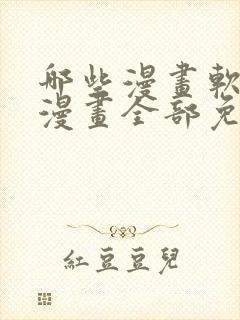 哪些漫畫軟
漫畫全部免
紅豆豆兒